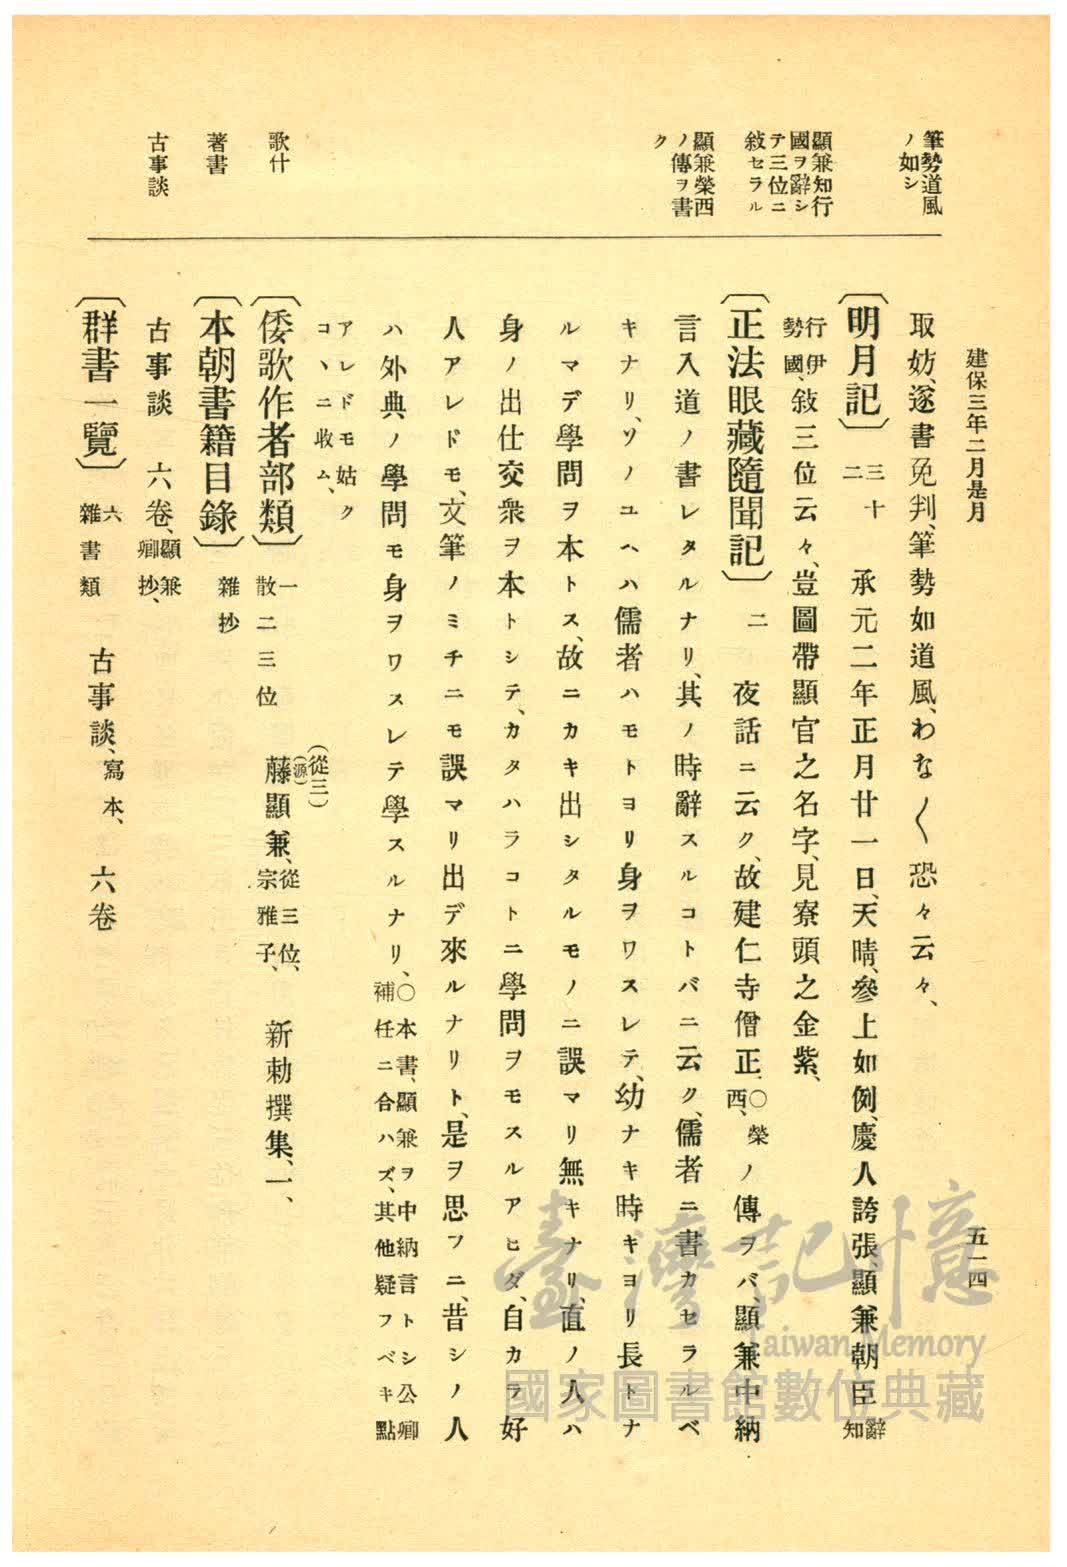 建保三年二月是月
五一四
筆勢道風
ノ如シ
顯兼知行
國ヲ辭シ
テ三位ニ
敍セラル
顯兼榮西
ノ傳ヲ書
ク
歌什
著書
古事談
取妨、逐書免判、筆勢如道風、わな〱恐々云々、
〔明月記〕三十二 承元二年正月廿一日、天晴、參上如例、慶人誇張、顯兼朝臣辭知
行伊勢國、敍三位云々、豈圖帶顯官之名字、見寮頭之金紫、
〔正法眼藏隨聞記〕二 夜話ニ云ク、故建仁寺僧正、〇榮西、ノ傳ヲバ、顯兼中納
言入道ノ書レタルナリ、其ノ時辭スルコトバニ云ク、儒者ニ書カセラルベ
キナリ、ソノユヘハ儒者ハモトヨリ身ヲワスレテ、幼ナキ時キヨリ長トナ
ルマデ學問ヲ本トス、故ニカキ出シタルモノニ誤マリ無キナリ、直ノ人ハ
身ノ出仕交衆ヲ本トシテ、カタハラコトニ學問ヲモスルアヒダ、自カラ好
人アレドモ、文筆ノミチニモ誤マリ出デ來ルナリト、是ヲ思フニ、昔シノ人
ハ外典ノ學問モ身ヲワスレテ學スルナリ、〇本書、顯兼ヲ中納言トシ公卿補任ニ合ハズ、其他疑フベキ點
アレドモ姑クコヽニ收ム、
〔倭歌作者部類〕一散二三位 藤(源)顯兼、(從三)從三位、宗雅子、 新勅撰集、一、
〔本朝書籍目錄〕雜抄
古事談 六卷、顯兼卿抄、
〔群書一覽〕六雜書類 古事談、寫本、 六卷
臺灣記憶
Taiwan Memory
國家圖書館數位典藏